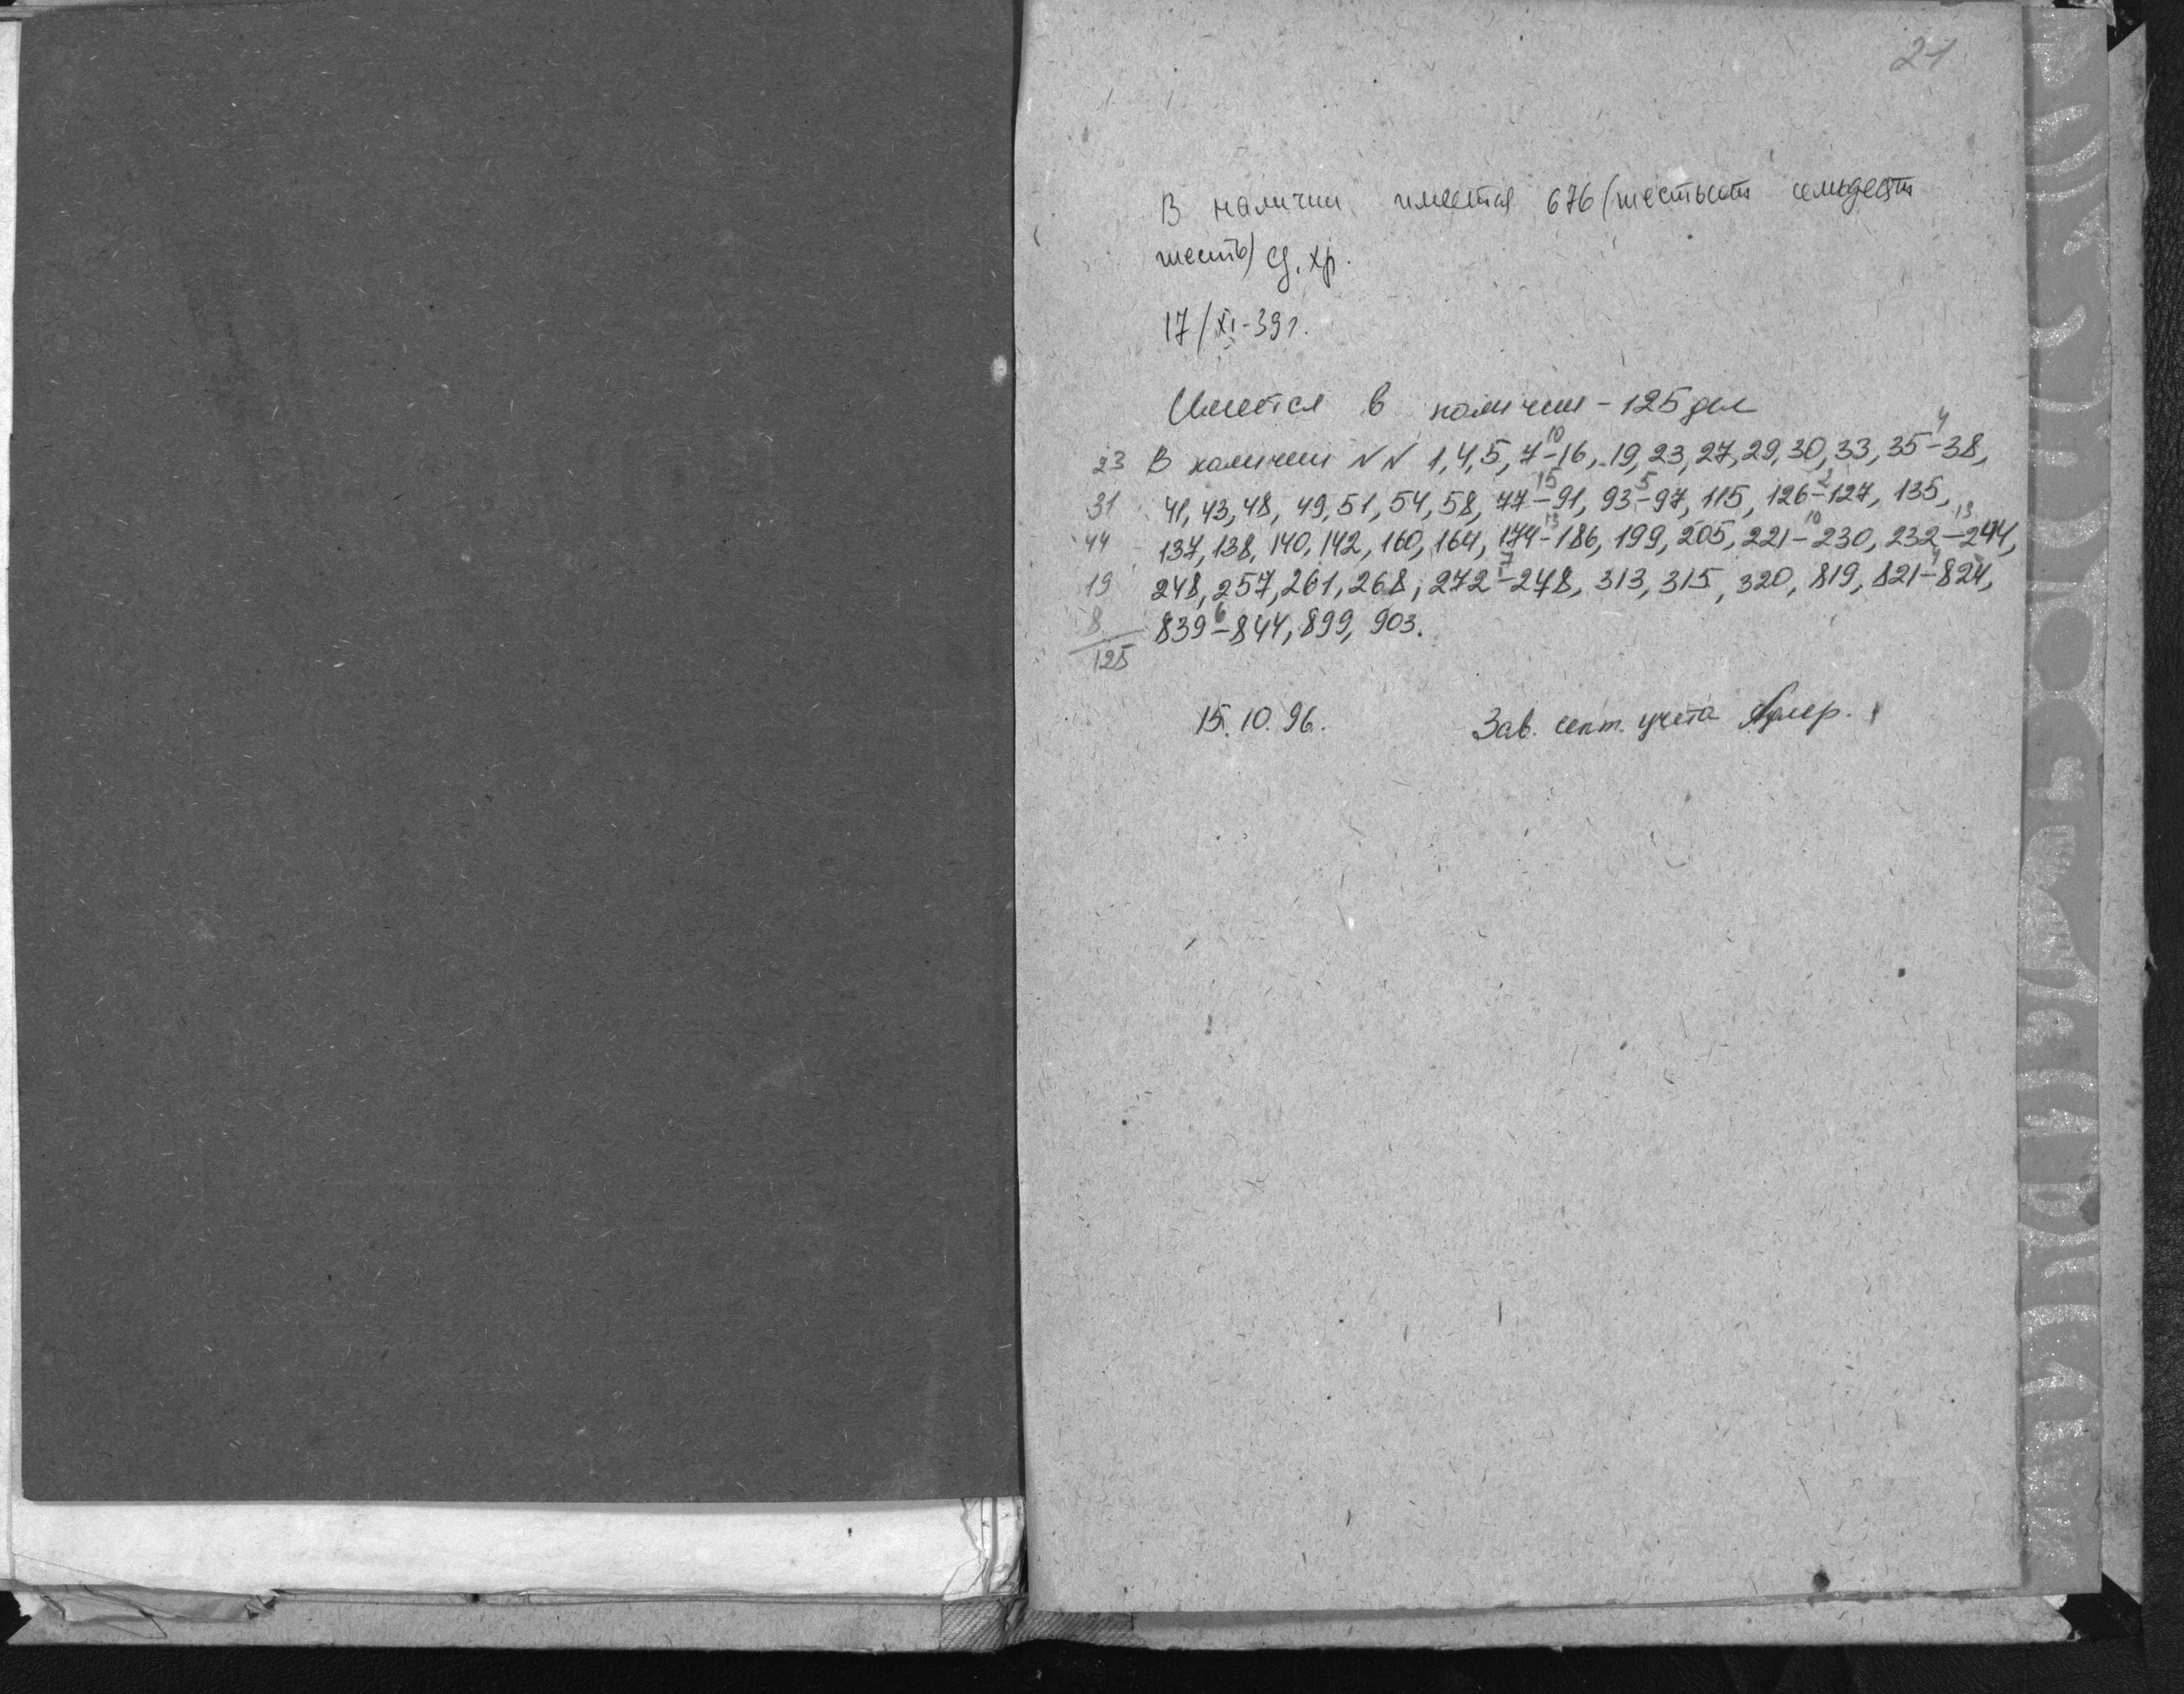 21
В наличии имеется 676 (шестьсот семьдесят
шесть) ед. хр.
17/XI-39г.
Имеется в наличии - 125 дел
23 В наличии NN 1, 4, 5, 7-16, 19, 23, 27, 29, 30, 33, 35-38,
31 41, 43, 48, 49, 51, 54, 58, 77-91, 93-97, 115, 126-127, 135,
44 137, 138, 140, 142, 160, 164, 174-186, 199, 205, 221-230, 232-244,
19 248, 257, 261, 268, 272-278, 313, 315, 320, 819, 821-824,
8 839-844, 899, 903.
125
15.10.96. Зав. сект. учета